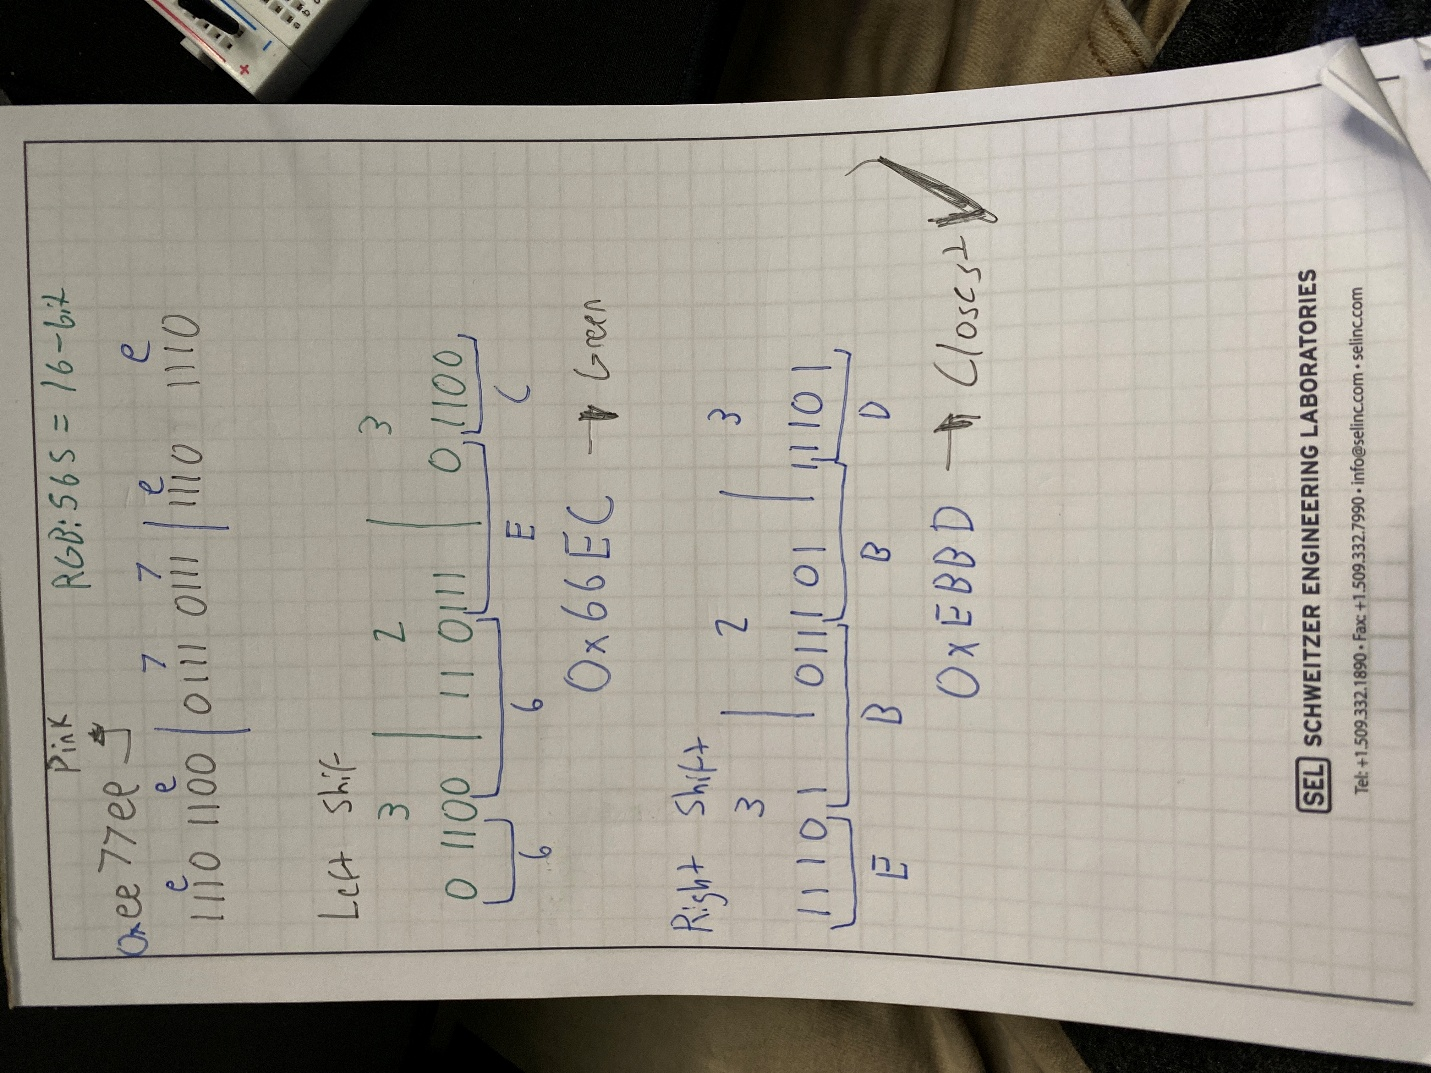 Pink RGB:565 = 16-bit
0xee77ee
e e 7 7 e e
1110 1100 | 0111 0111 | 1110 1110
Left Shift
3 2 3
0 1100 | 11 0111 | 0 1100
6 6 E C
0x66EC → Green
Right Shift
3 2 3
11101 | 011101 | 11101
E B B D
0xEBBD → Closest
SEL SCHWEITZER ENGINEERING LABORATORIES
Tel: +1.509.332.1890 • Fax: +1.509.332.7990 • info@selinc.com • selinc.com